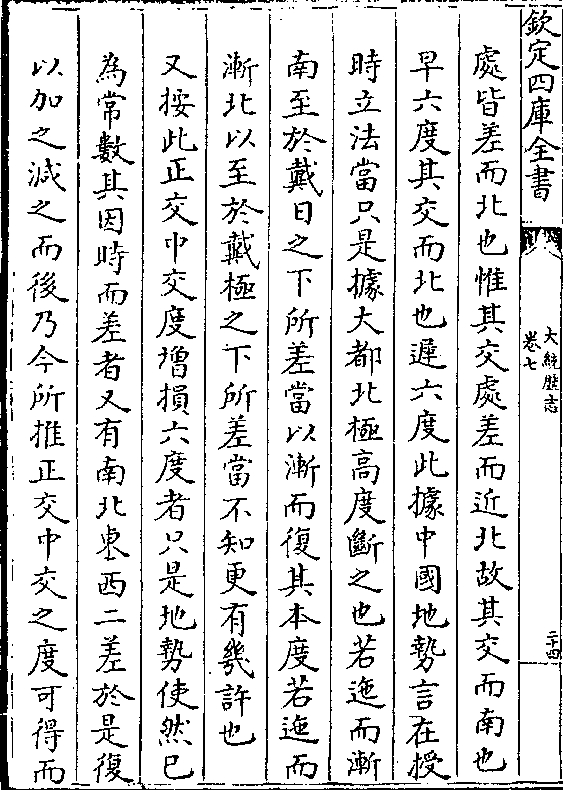 欽定四庫全書
大統歴志
卷七
二十四
處皆差而北也惟其交處差而近北故其交而南也
早六度其交而北也遲六度此據中國地勢言在授
時立法當只是據大都北極高度斷之也若迤而漸
南至於戴日之下所差當以漸而復其本度若迤而
漸北以至於戴極之下所差當不知更有幾許也
又按此正交中交度增損六度者只是地勢使然已
為常數其因時而差者又有南北東西二差於是復
以加之減之而後乃今所推正交中交之度可得而